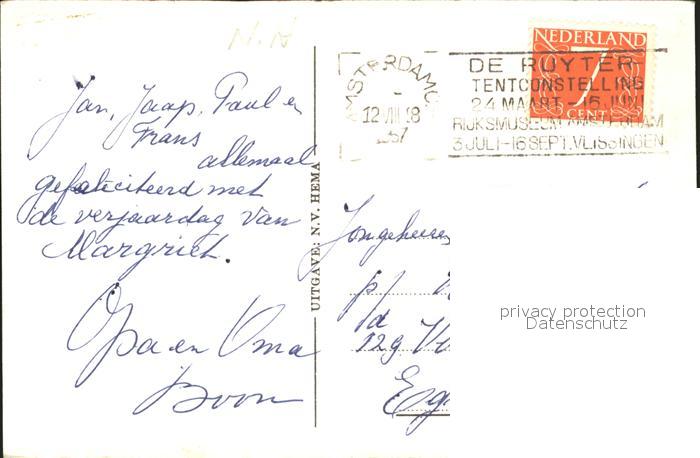 N.N
Jan, Jaap, Paul en
Frans
allemaal
gefeliciteerd met
de verjaardag van
Margriet.
Opa en Oma
Boon
UITGAVE: N.V. HEMA
AMSTERDAM C.
12 VIII 18
1957
DE RUYTER
TENTOONSTELLING
24 MAART - 15 JUNI
RIJKSMUSEUM AMSTERDAM
3 JULI - 16 SEPT. VLISSINGEN
NEDERLAND
7
CENT
Jongeheeren
p/
d
129
Eg
privacy protection
Datenschutz